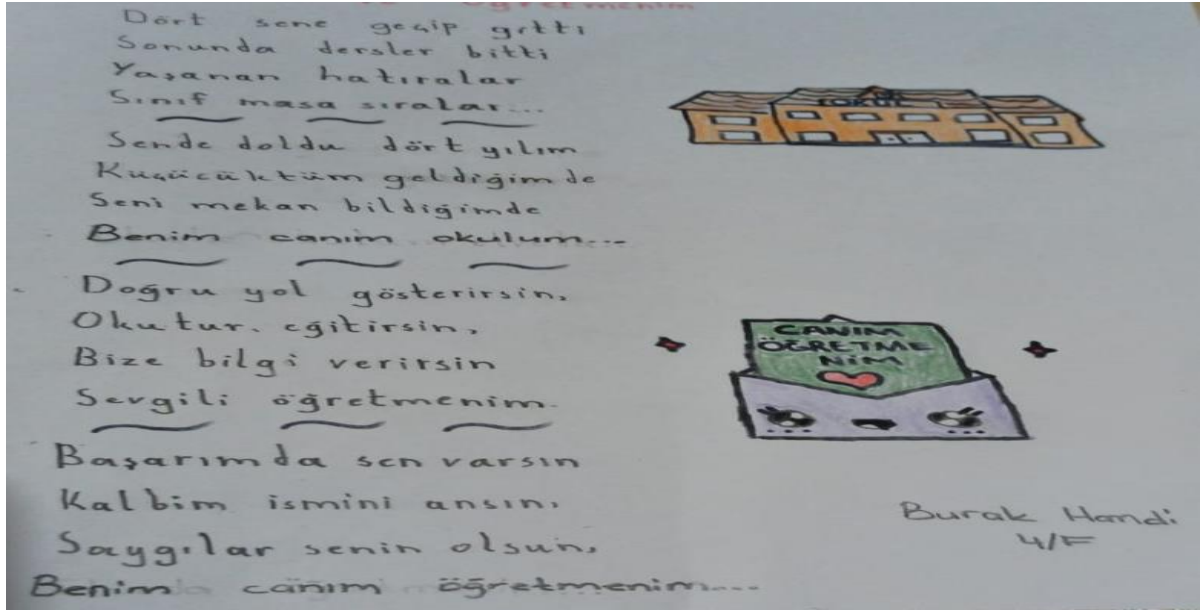 Öğretmenim
Dört sene geçip gitti
Sonunda dersler bitti
Yaşanan hatıralar
Sınıf masa sıralar...
Sende doldu dört yılım
Küçücüktüm geldiğimde
Seni mekan bildiğimde
Benim canım okulum...
Doğru yol gösterirsin,
Okutur, eğitirsin,
Bize bilgi verirsin
Sevgili öğretmenim.
Başarımda sen varsın
Kalbim ismini ansın,
Saygılar senin olsun,
Benim canım öğretmenim...
OKUL
CANIM
ÖĞRETME
NİM
Burak Hamdi
4/F